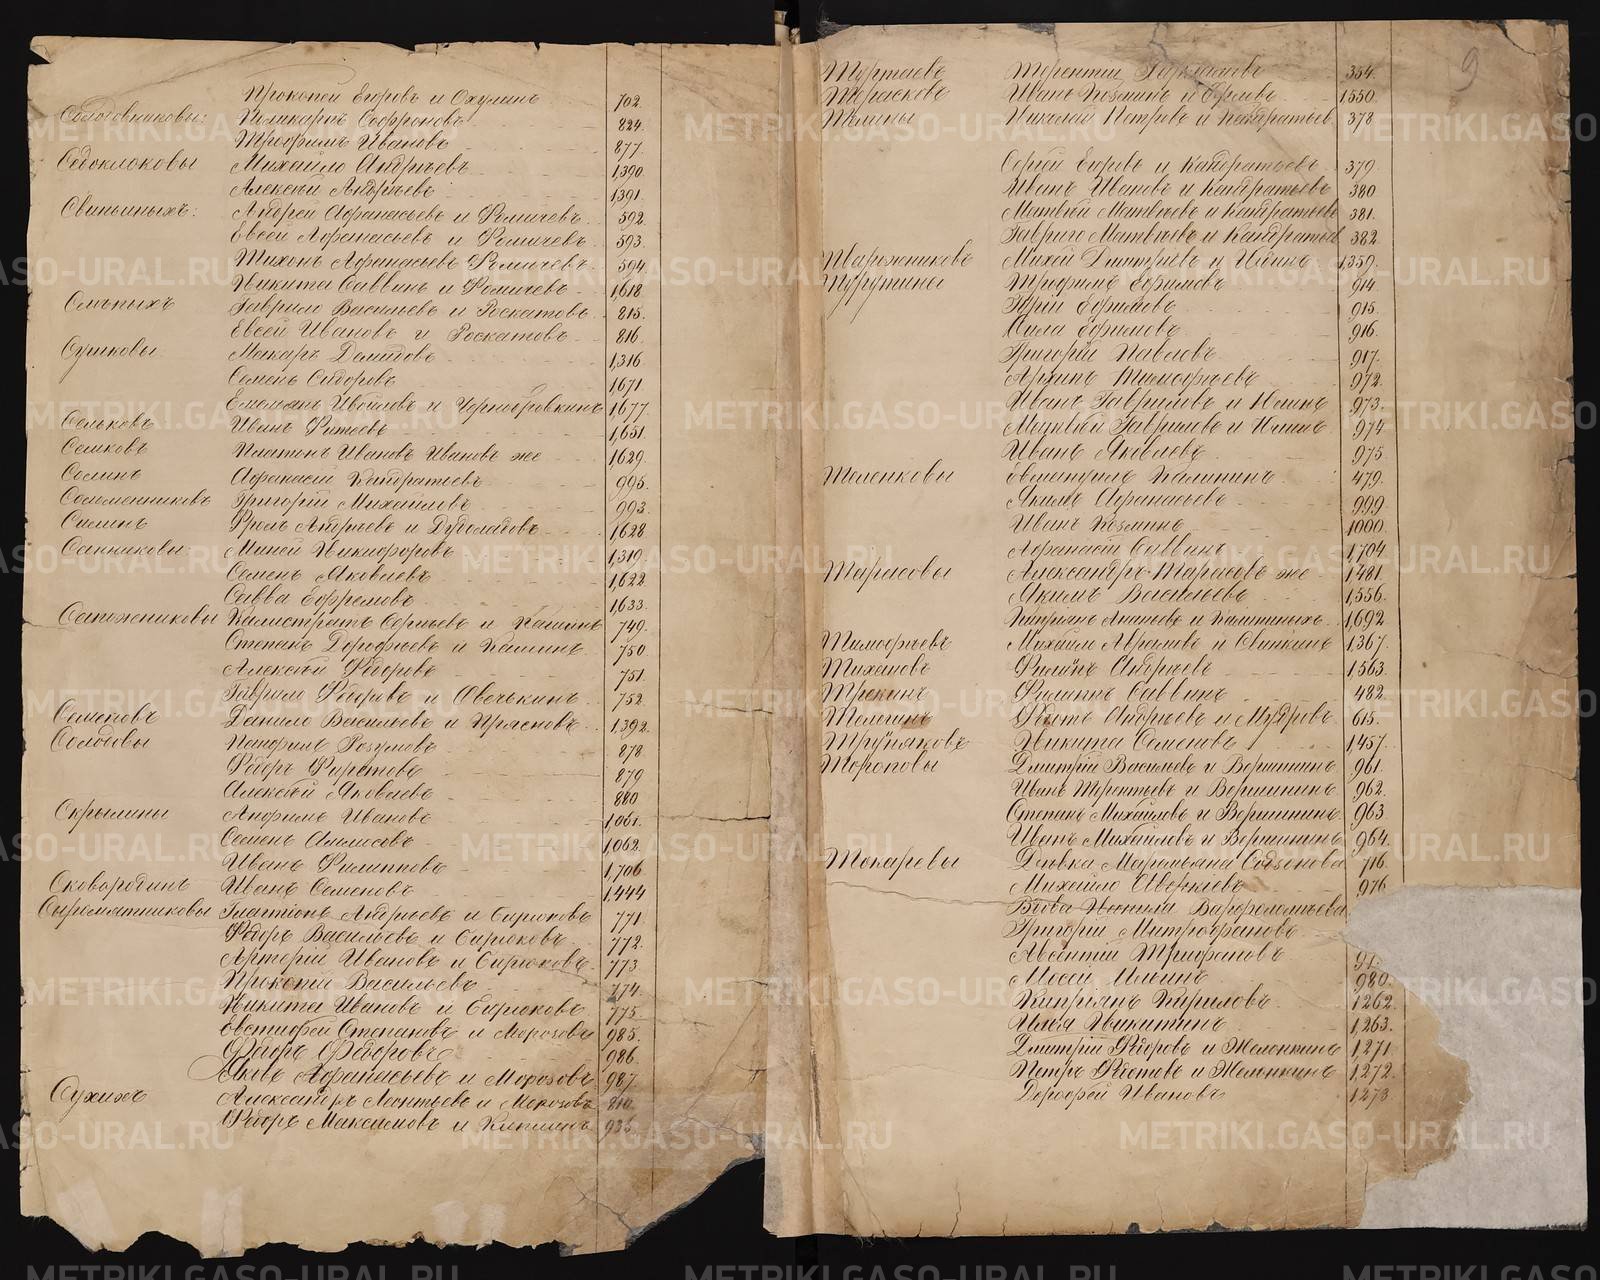 Прокопей Егоровъ и Охулинъ 702.
Солодовниковы: Поликарпъ Софроновъ 824.
Трофимъ Ивановъ 877.
Седоклоковы Михайло Андреевъ 1,390.
Алексѣй Андреевъ 1,391.
Свиньиныхъ: Андрей Афанасьевъ и Фомичевъ 592.
Евсей Афонасьевъ и Фомичевъ 593.
Тихонъ Афанасьевъ Фомичевъ 594.
Никита Саввинъ и Фомичевъ 1,618
Слѣпыхъ Гаврило Васильевъ и Роскатовъ 815.
Евсей Ивановъ и Роскатовъ 816.
Сушковы Макаръ Демидовъ 1,316.
Семенъ Сидоровъ 1,671.
Емельянъ и 1,677.
Сельковъ Иванъ 1,651.
Сешковъ Платонъ Ивановъ Ивановъ же 1,629.
Соминъ Афанасей Кандратьевъ 995.
Григорій Михайловъ 993.
Силинъ Фролъ Андреевъ и 1,628.
Сапниковы Миней Никифоровъ 1,319.
Семенъ Яковлевъ 1,622.
Савва Ефремовъ 1,633.
Сапожниковы Калистратъ Сергѣевъ и Кашинъ 749.
Степанъ Дорофѣевъ и Кашинъ 750.
Алексѣй Федоровъ 751.
Гаврило Федоровъ и Овечькинъ 752.
Семеновъ Данило Васильевъ и Прясновъ 1,392.
Панфилъ Розумовъ 878.
Федоръ Фирстовъ 879
Алексѣй Яковлевъ 880
Анфимъ Ивановъ 1,061.
Семенъ 1,062.
Иванъ Филипповъ 1,706
Сковородинъ Иванъ Семеновъ 1,444
Сыромятниковы Андреевъ и Сирюковъ 771
Федоръ Васильевъ и Сирюковъ 772.
Ивановъ и Сирюковъ 773
Прокопій Васильевъ 774.
Никита Ивановъ и Сирюковъ 775.
Евстифей Степановъ и Морозовъ 985.
Федоръ Федоровъ 986.
Яковъ Афанасьевъ и Морозовъ 987.
Сухихъ Александръ Леонтьевъ и Морозовъ 810.
Федоръ Максимовъ и 935.
9
Терентий 354.
Иванъ Козминъ и 1550
Николай Петровъ и Кандратьев 378
Сергей Егоровъ и Кандратьевъ 379.
Иванъ Ивановъ и Кандратьевъ 380
Матвѣй Матвѣевъ и Кандратьевъ 381.
Гаврило Матвѣевъ и Кандратьев 382
Михей Дмитріевъ и 1,359.
Трофимъ Ефимовъ 914
Ефимовъ 915.
Сила Ефимовъ 916.
Григорій Павловъ 917.
Архипъ Тимофѣевъ 972.
Иванъ Гавриловъ и 973.
Матвѣй Гавриловъ и 974
Иванъ Яковлевъ 975.
Теленковы Калининъ 479.
Якимъ Афанасьевъ 999
Иванъ Козминъ 1000.
Афанасій Саввинъ 1,704.
Тарасовы Александръ Тарасовъ же 1481.
Якимъ Васильевъ 1,556.
Кипріянъ Ананьевъ и 1,692
Тимофѣевъ Михайло Абрамовъ и Свинкинъ 1,367.
Тихановъ Филипъ Андреевъ 1,563.
Филипъ Саввинъ 482.
Телегинъ Федотъ Андреевъ и 615.
Труняковъ Никита Семеновъ 1,457.
Тороповы Дмитрій Васильевъ и Вершининъ 961.
Иванъ Терентьевъ и Вершининъ 962.
Степанъ Михайловъ и Вершининъ 963.
Иванъ Михайловъ и Вершининъ 964.
Токаревы Дѣвка Маремьяна 716.
Михайло Аверкіевъ 976
Вдова Варфоломѣева
Григорій Митрофановъ
Авсентій Трифановъ
Мосей Ильинъ 980.
Кипріянъ Кириловъ 1262.
Илья Никитинъ 1,263.
Дмитрій Федоровъ и Желонкинъ 1,271
Петръ и Желонкинъ 1,272.
Дорофей Ивановъ 1,273
METRIKI.GASO-URAL.RU